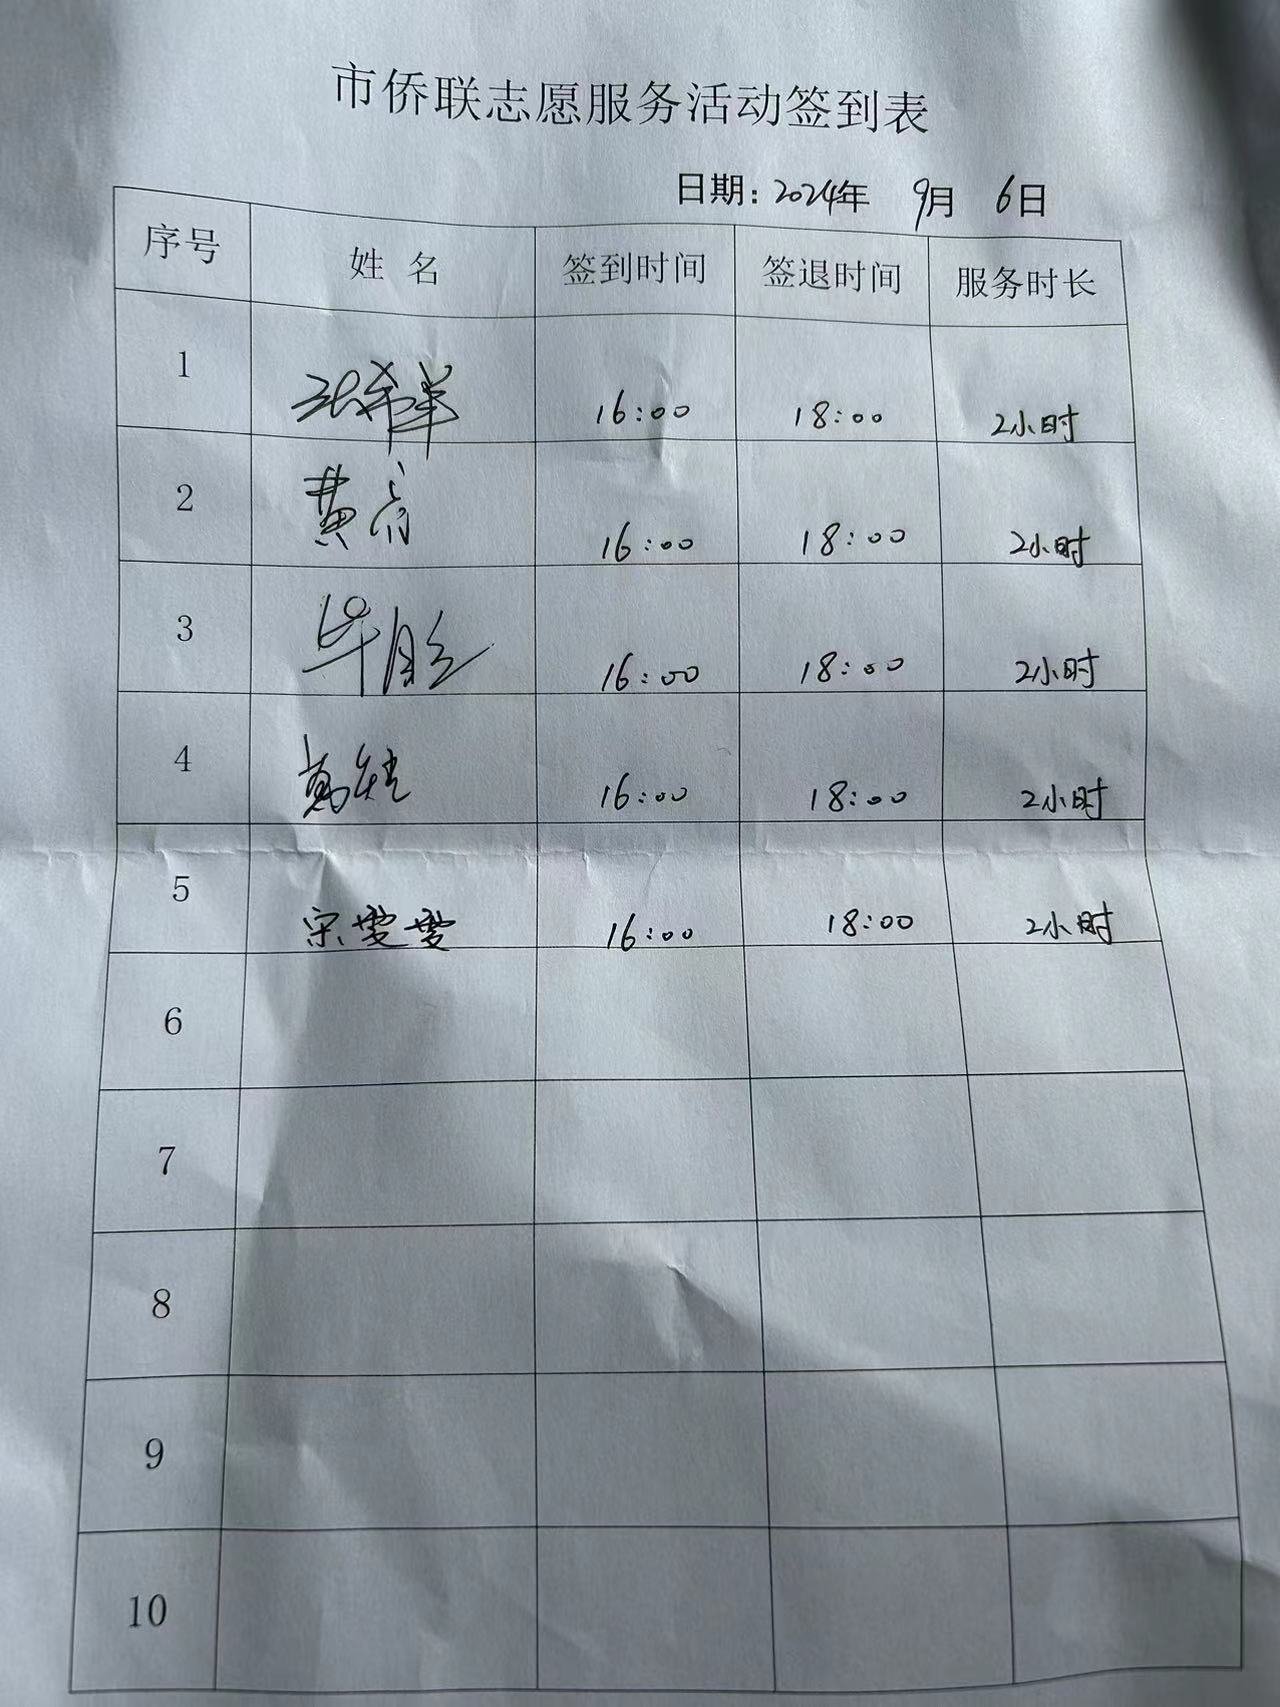 市侨联志愿服务活动签到表
日期: 2024年 9月 6日
序号 姓名 签到时间 签退时间 服务时长
1 16:00 18:00 2小时
2 黄 16:00 18:00 2小时
3 毕胜 16:00 18:00 2小时
4 16:00 18:00 2小时
5 宋雯雯 16:00 18:00 2小时
6
7
8
9
10